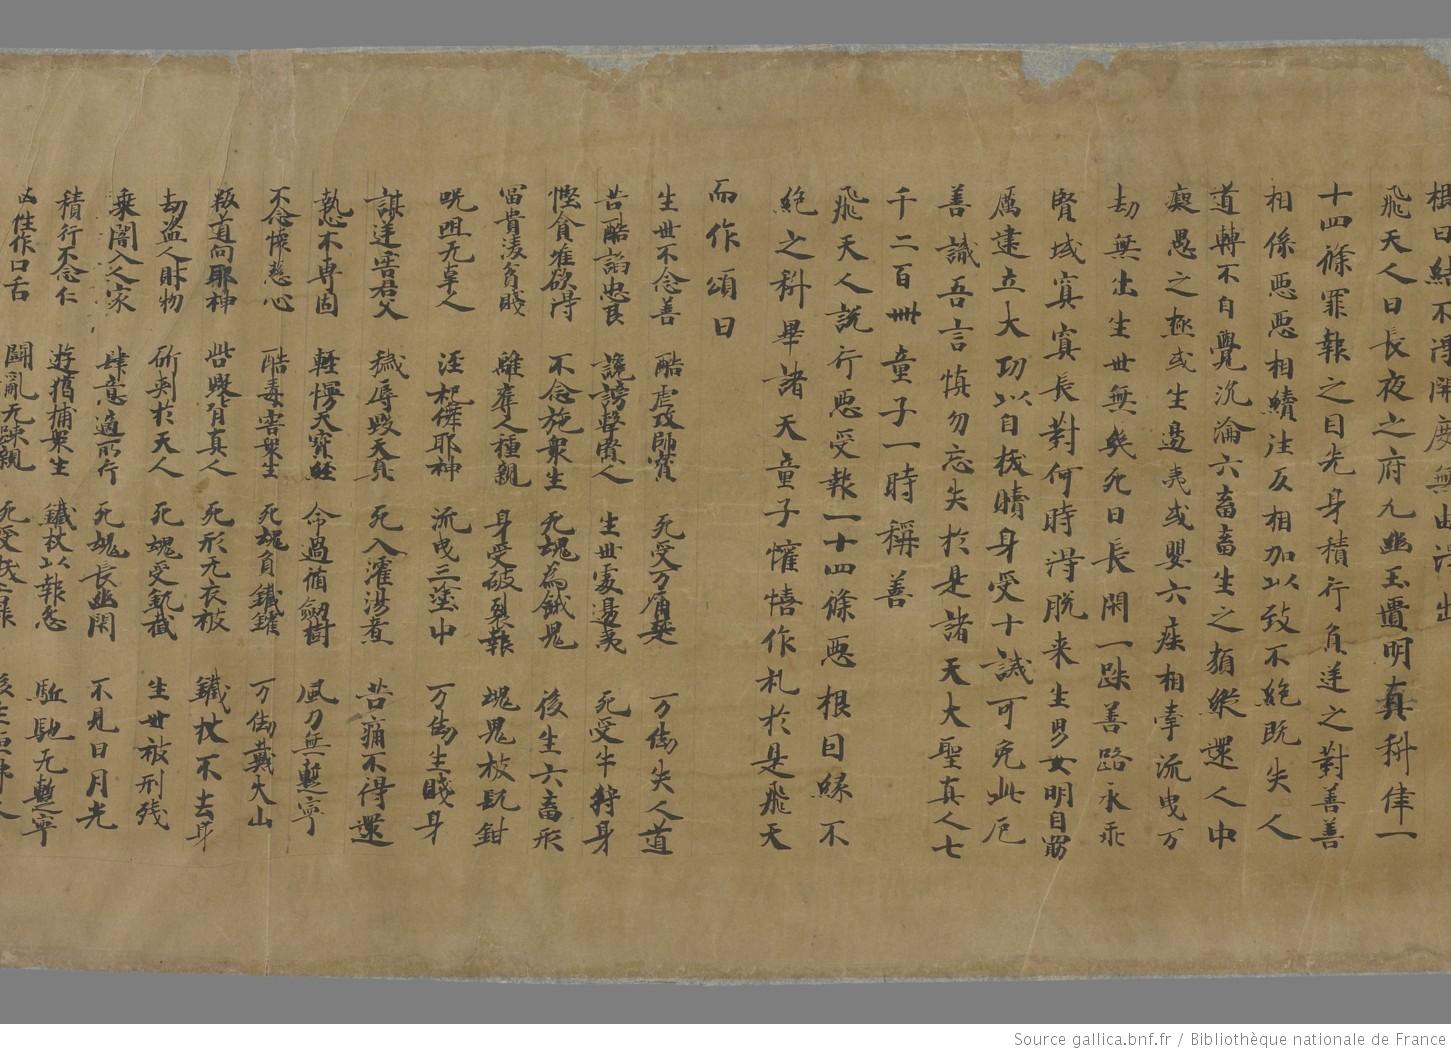 根因緣不得開度無由得出
飛天人曰長夜之府九幽玉匱明真科律一
十四條罪報之目先身積行負逆之對善善
相係惡惡相續往反相加以致不絶既失人
道轉不自覺沉淪六畜畜生之類縱還人中
癡愚之極或生邊夷或嬰六疾相牽流曳万
劫無出生世無幾死日長閇一跌善路永乖
賢域寘寘長對何時得脫来生男女明自劭
厲建立大功以自拔贖身受十誡可免此厄
善誡吾言慎勿忘失於是諸天大聖真人七
千二百卌童子一時稱善
飛天人說行惡受報一十四條惡根因緣不
絶之科畢諸天童子懽憘作礼於是飛天
而作頌曰
生世不念善 酷虐攻師賓 死受万痛 万劫失人道
苦酷謟忠良 讒謗聲賢人 生世處邊夷 死受牛 身
慳貪唯欲得 不念施衆生 死魂為餓鬼 後生六畜形
冨貴淩貧賤 離奪人種親 身受破裂報 魂鬼杻既鉗
呪咀无辜人 淫祀耶神 流曳三塗中 万劫生賤身
謀逆害君父 穢辱毀天真 死入濩湯煮 苦痛不得還
執心不專固 輕慢天寶經 命過循劔樹 風刀無蹔寧
不念懷慈心 酷毒害衆生 死魂負鐵鑵 万劫戴火山
叛道向耶神 呰毀背真人 死形无衣被 鐵杖不去身
劫盗人財物 斫刺於天人 死魂受 生世被刑残
乗闇入人家 肆意適所行 死魂長幽閇 不見日月光
積行不念仁 遊獦捕衆生 鐵杖以報怨 駈馳无蹔寧
凶性作口舌 鬪亂无踈親 死受